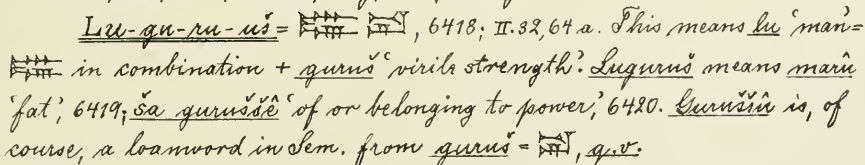 Lu-gu-ru-uš = 𒇽 𒄨, 6418; II. 32, 64 a. This means lu 'man' =
in combination + guruš 'virile strength'. Luguruš means marû
'fat', 6419; ša guruššê 'of or belonging to power', 6420. Guruššû is, of
course, a loanword in Sem. from guruš = , q.v.